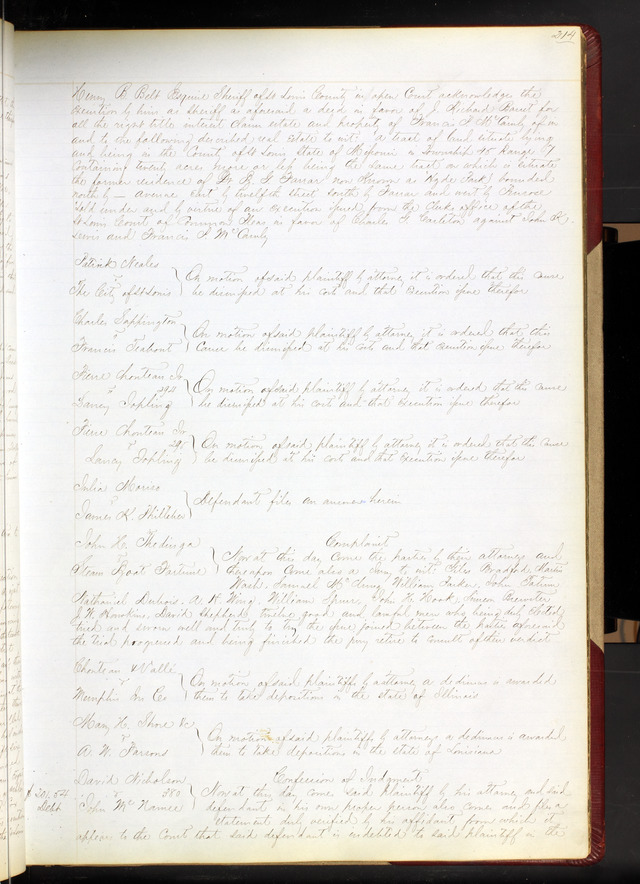 214
Henry B Belt Esquire Sheriff of St Louis County in open Court acknowledges the
execution by him as sheriff as aforesaid a deed in favor of J Richard Barret for
all the right title interest claim estate and property of Francis J McCamly upon
and to the following described real estate to wit, a tract of land situate lying
and being in the County of St Louis State of Missouri in Township 45 Range 7
Containing twenty acres more or less being the same tract on which is situate
the former residence of B. G Farrar now Known as Hyde Park bounded
north by — avenue East by twelfth street South by Farrar and west by Penrose
sold under and by virtue of an execution issued from the Clerks office of the
St Louis Court of Common Pleas in favor of Charles G Carleton against John R
Lewis and Francis J McCamly
Patrick Neales
vs
The City of St Louis
On motion of said plaintiff by attorney it is ordered that this cause
be dismissed at his cost and that execution issue therefor
Charles Sappington
vs
Francis Teabout
On motion of said plaintiff by attorney it is ordered that this
Cause be dismissed at his costs and that execution issue therefor
Pierre Chouteau Jr
vs
Darcy Topling
On motion of said plaintiff by attorney it is ordered that this cause
be dismissed at his cost and that execution issue therefor
Pierre Chouteau Jr
vs
Darcy Topling
On motion of said plaintiff by attorney it is ordered that this cause
be dismissed at his cost and that execution issue therefor
Julia
vs
James K.
Defendant files an answer herein
John H.
vs
Steam Boat Fortune
Complaint
Now at this day Come the parties by their attorneys and
thereupon Come also a Jury to wit, Giles Bradford, Martin
Wait, Samuel McClurg, William John
Nathaniel Dubois, A. R Wing, William Squire, John H. Hook, Simeon Brewster
J. W. Hawkins, David Shepherd, twelve good and lawful men who being duly elected
tried and sworn well and truly to try the issue joined between the parties aforesaid
the trial progressed and being finished the jury retire to consult of their verdict
Chouteau & Valle
vs
Memphis Ins Co
On motion of said plaintiffs by attorney a dedimus is awarded
them to take depositions in the state of Illinois
Mary H. Shore &c
vs
A. W. Parsons
On motion of said plaintiffs by attorneys a dedimus is awarded
them to take depositions in the state of Louisiana
David Nicholson
vs 380
John McNamee
$201.54
Debt
Confession of Judgment
Now at this day come said plaintiff by his attorney and said
defendant in his own proper person also come and files a
statement duly verified by his affidavit from which it
appears to the Court that said defendant is indebted to said plaintiff in the